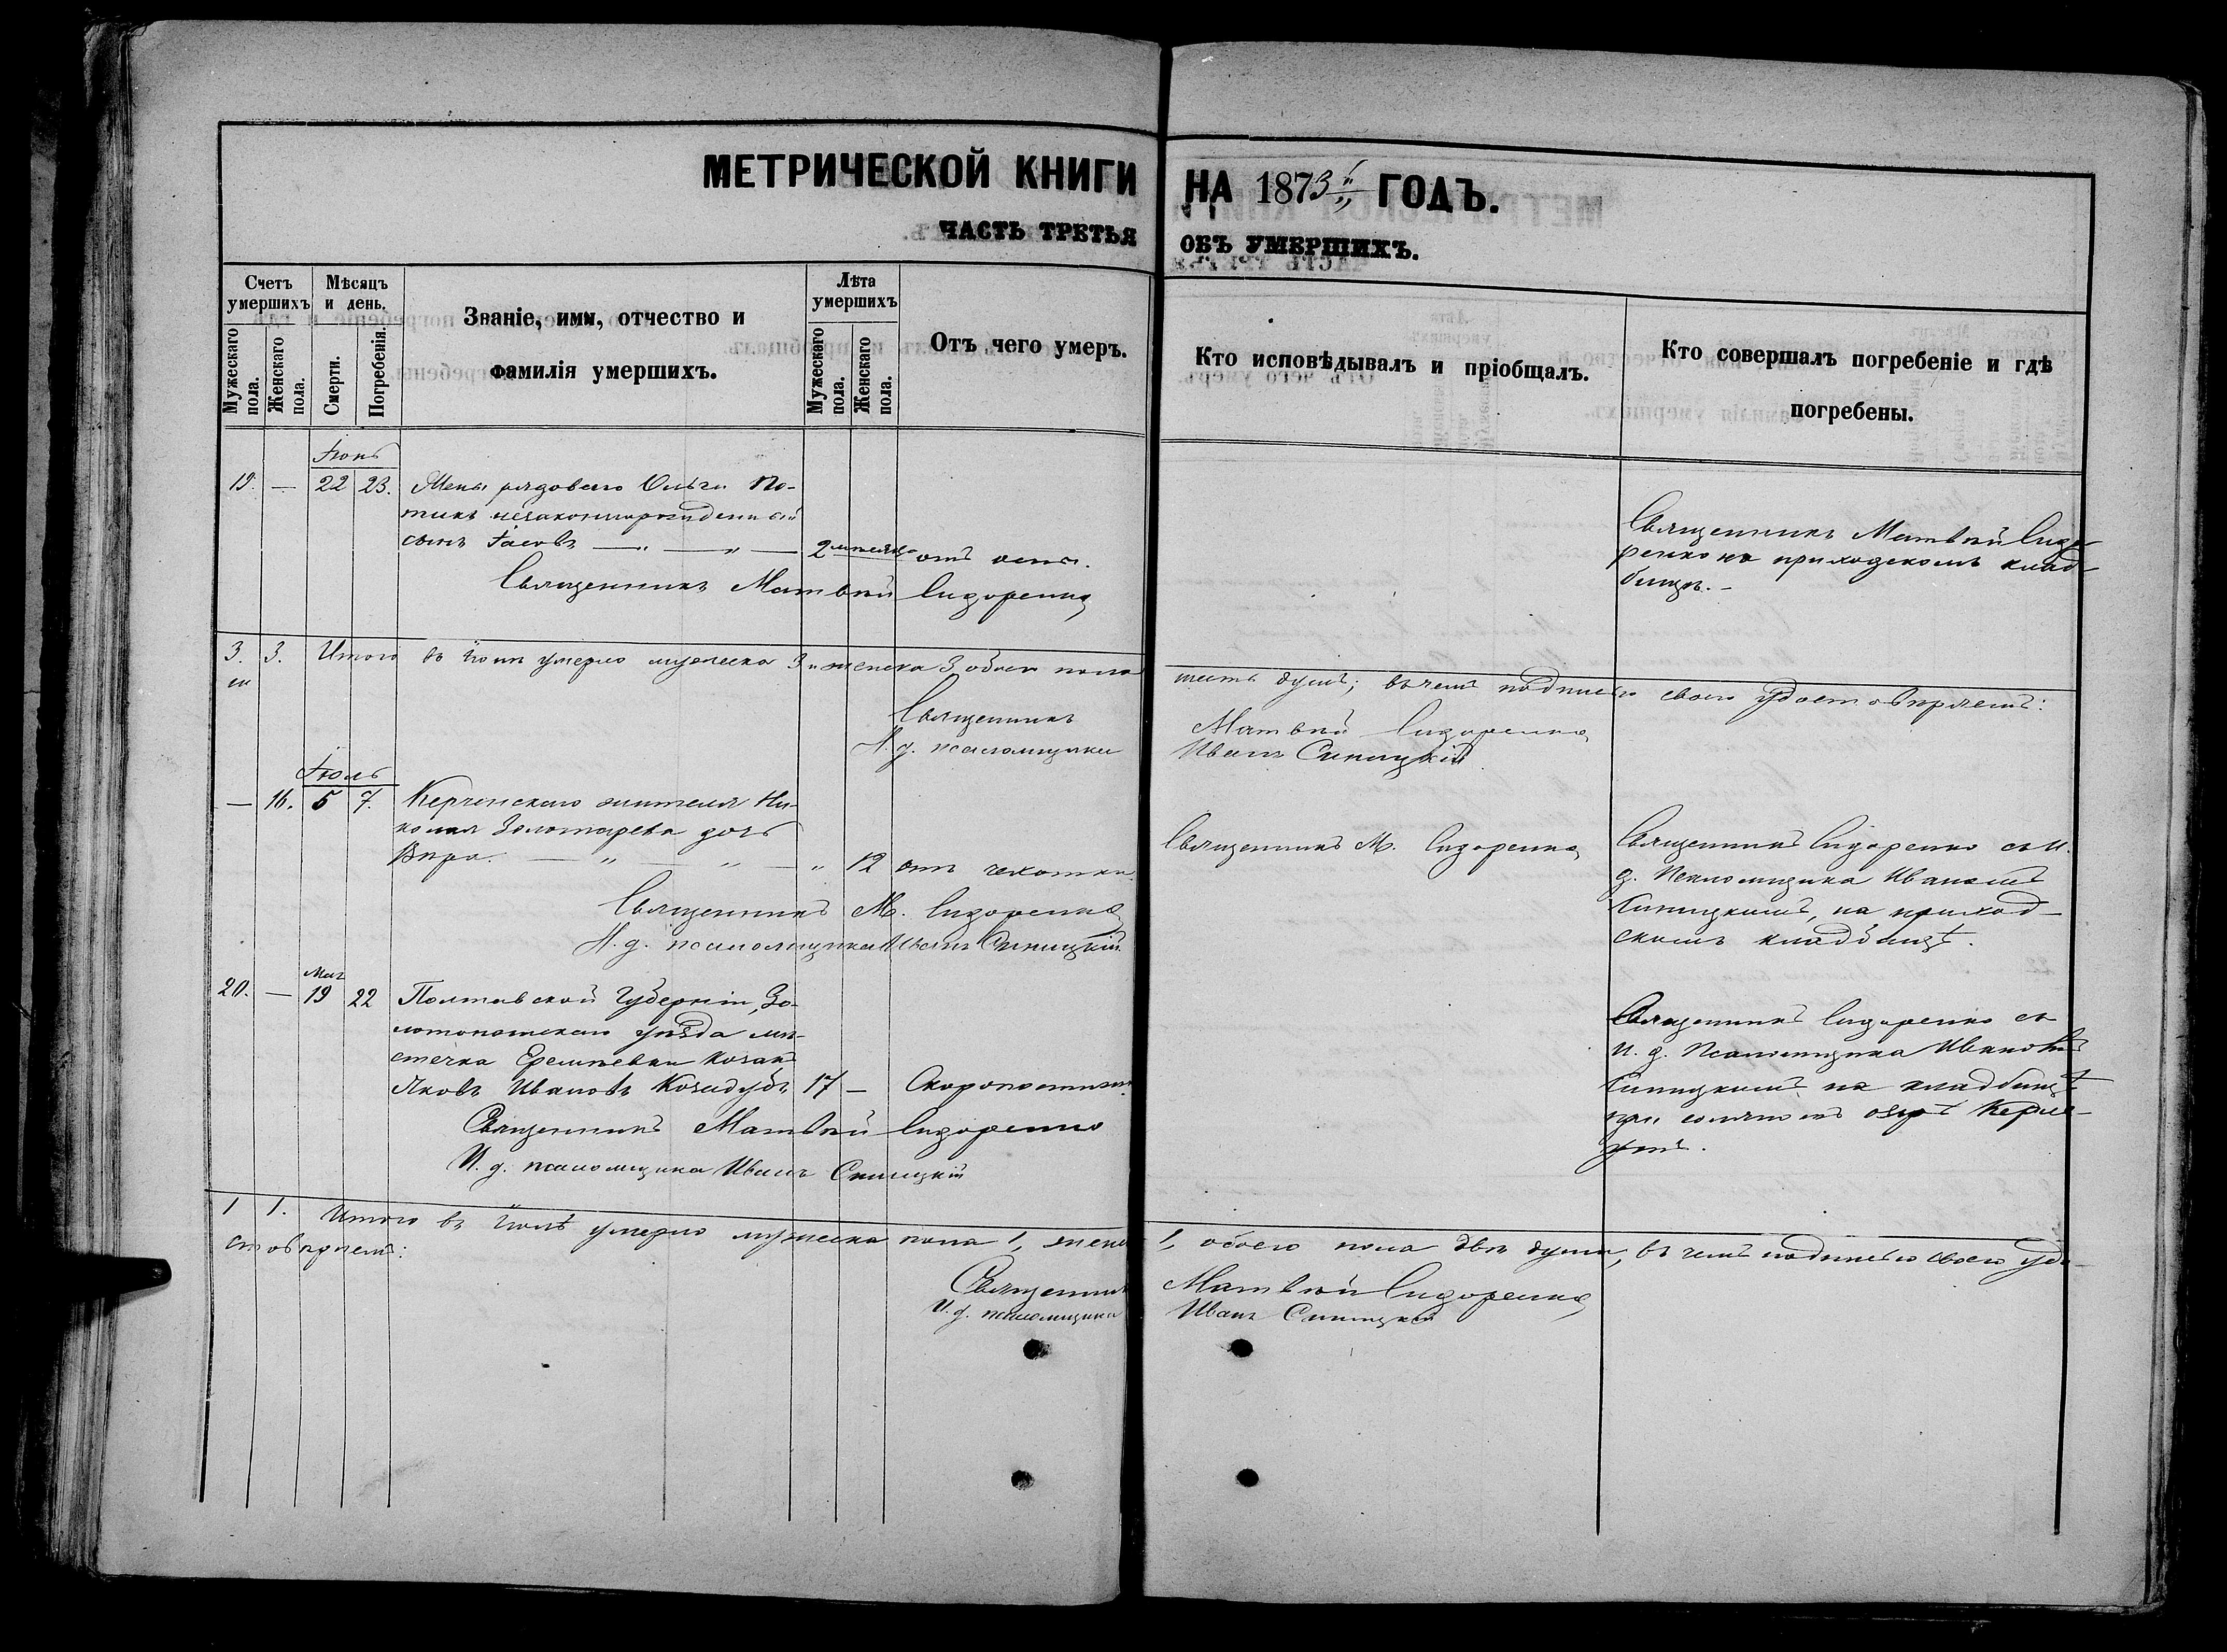 МЕТРИЧЕСКОЙ КНИГИ НА 1873й ГОДЪ.
ЧАСТЬ ТРЕТЬЯ ОБЪ УМЕРШИХЪ.
Счетъ умершихъ
Мужескаго пола.
Женскаго пола.
Мѣсяцъ и день.
Смерти.
Погребенія.
Званіе, имя, отчество и
фамилія умершихъ.
Лѣта умершихъ
Мужескаго пола.
Женскаго пола.
Отъ чего умеръ.
Кто исповѣдывалъ и пріобщалъ.
Кто совершалъ погребеніе и гдѣ
погребены.
Іюнь
19. — 22 23. Жены рядоваго Ольги По-
незаконнорожденный
сынъ Іаковъ — „ — „ — 2 отъ оспы.
Священникъ Матвѣй Сидоренко
Священникъ Матвѣй Сидо-
ренко на приходскомъ клад-
бищѣ. –
3. 3. Итого въ Іюнѣ умерло мужеска 3 и женска 3 обоего пола
шесть душъ; въ чемъ подписью своею удостовѣряемъ:
Священникъ Матвѣй Сидоренко
И. д. псаломщика Иванъ Синицкій
Іюль
— 16. 5 7. Керченскаго жителя Ни-
колая Золотарева дочь
Вѣра. — „ — „ — „ 12 отъ чахотки.
Священникъ М. Сидоренко
И. д. псаломщика Иванъ Синицкій
Священникъ М. Сидоренко
Священникъ Сидоренко съ И.
д. Псаломщика Иваномъ
Синицкимъ, на приход-
скомъ кладбищѣ.
Мая
20. — 19 22 Полтавской Губерніи, Зо-
лотоношскаго уѣзда мѣ-
стечка Еремѣевки козакъ
Яковъ Ивановъ Козидубъ 17 — Скоропостижно.
Священникъ Матвѣй Сидоренко
И. д. псаломщика Иванъ Синицкій
Священникъ Сидоренко съ
И. д. Псаломщика Иваномъ
Синицкимъ на кладбищѣ
при соляномъ озерѣ
1 1. Итого въ Іюлѣ умерло мужеска пола 1, женск 1, обоего пола двѣ души, въ чемъ подписью своею удо-
стовѣряемъ:
Священникъ Матвѣй Сидоренко
И. д. псаломщика Иванъ Синицкій